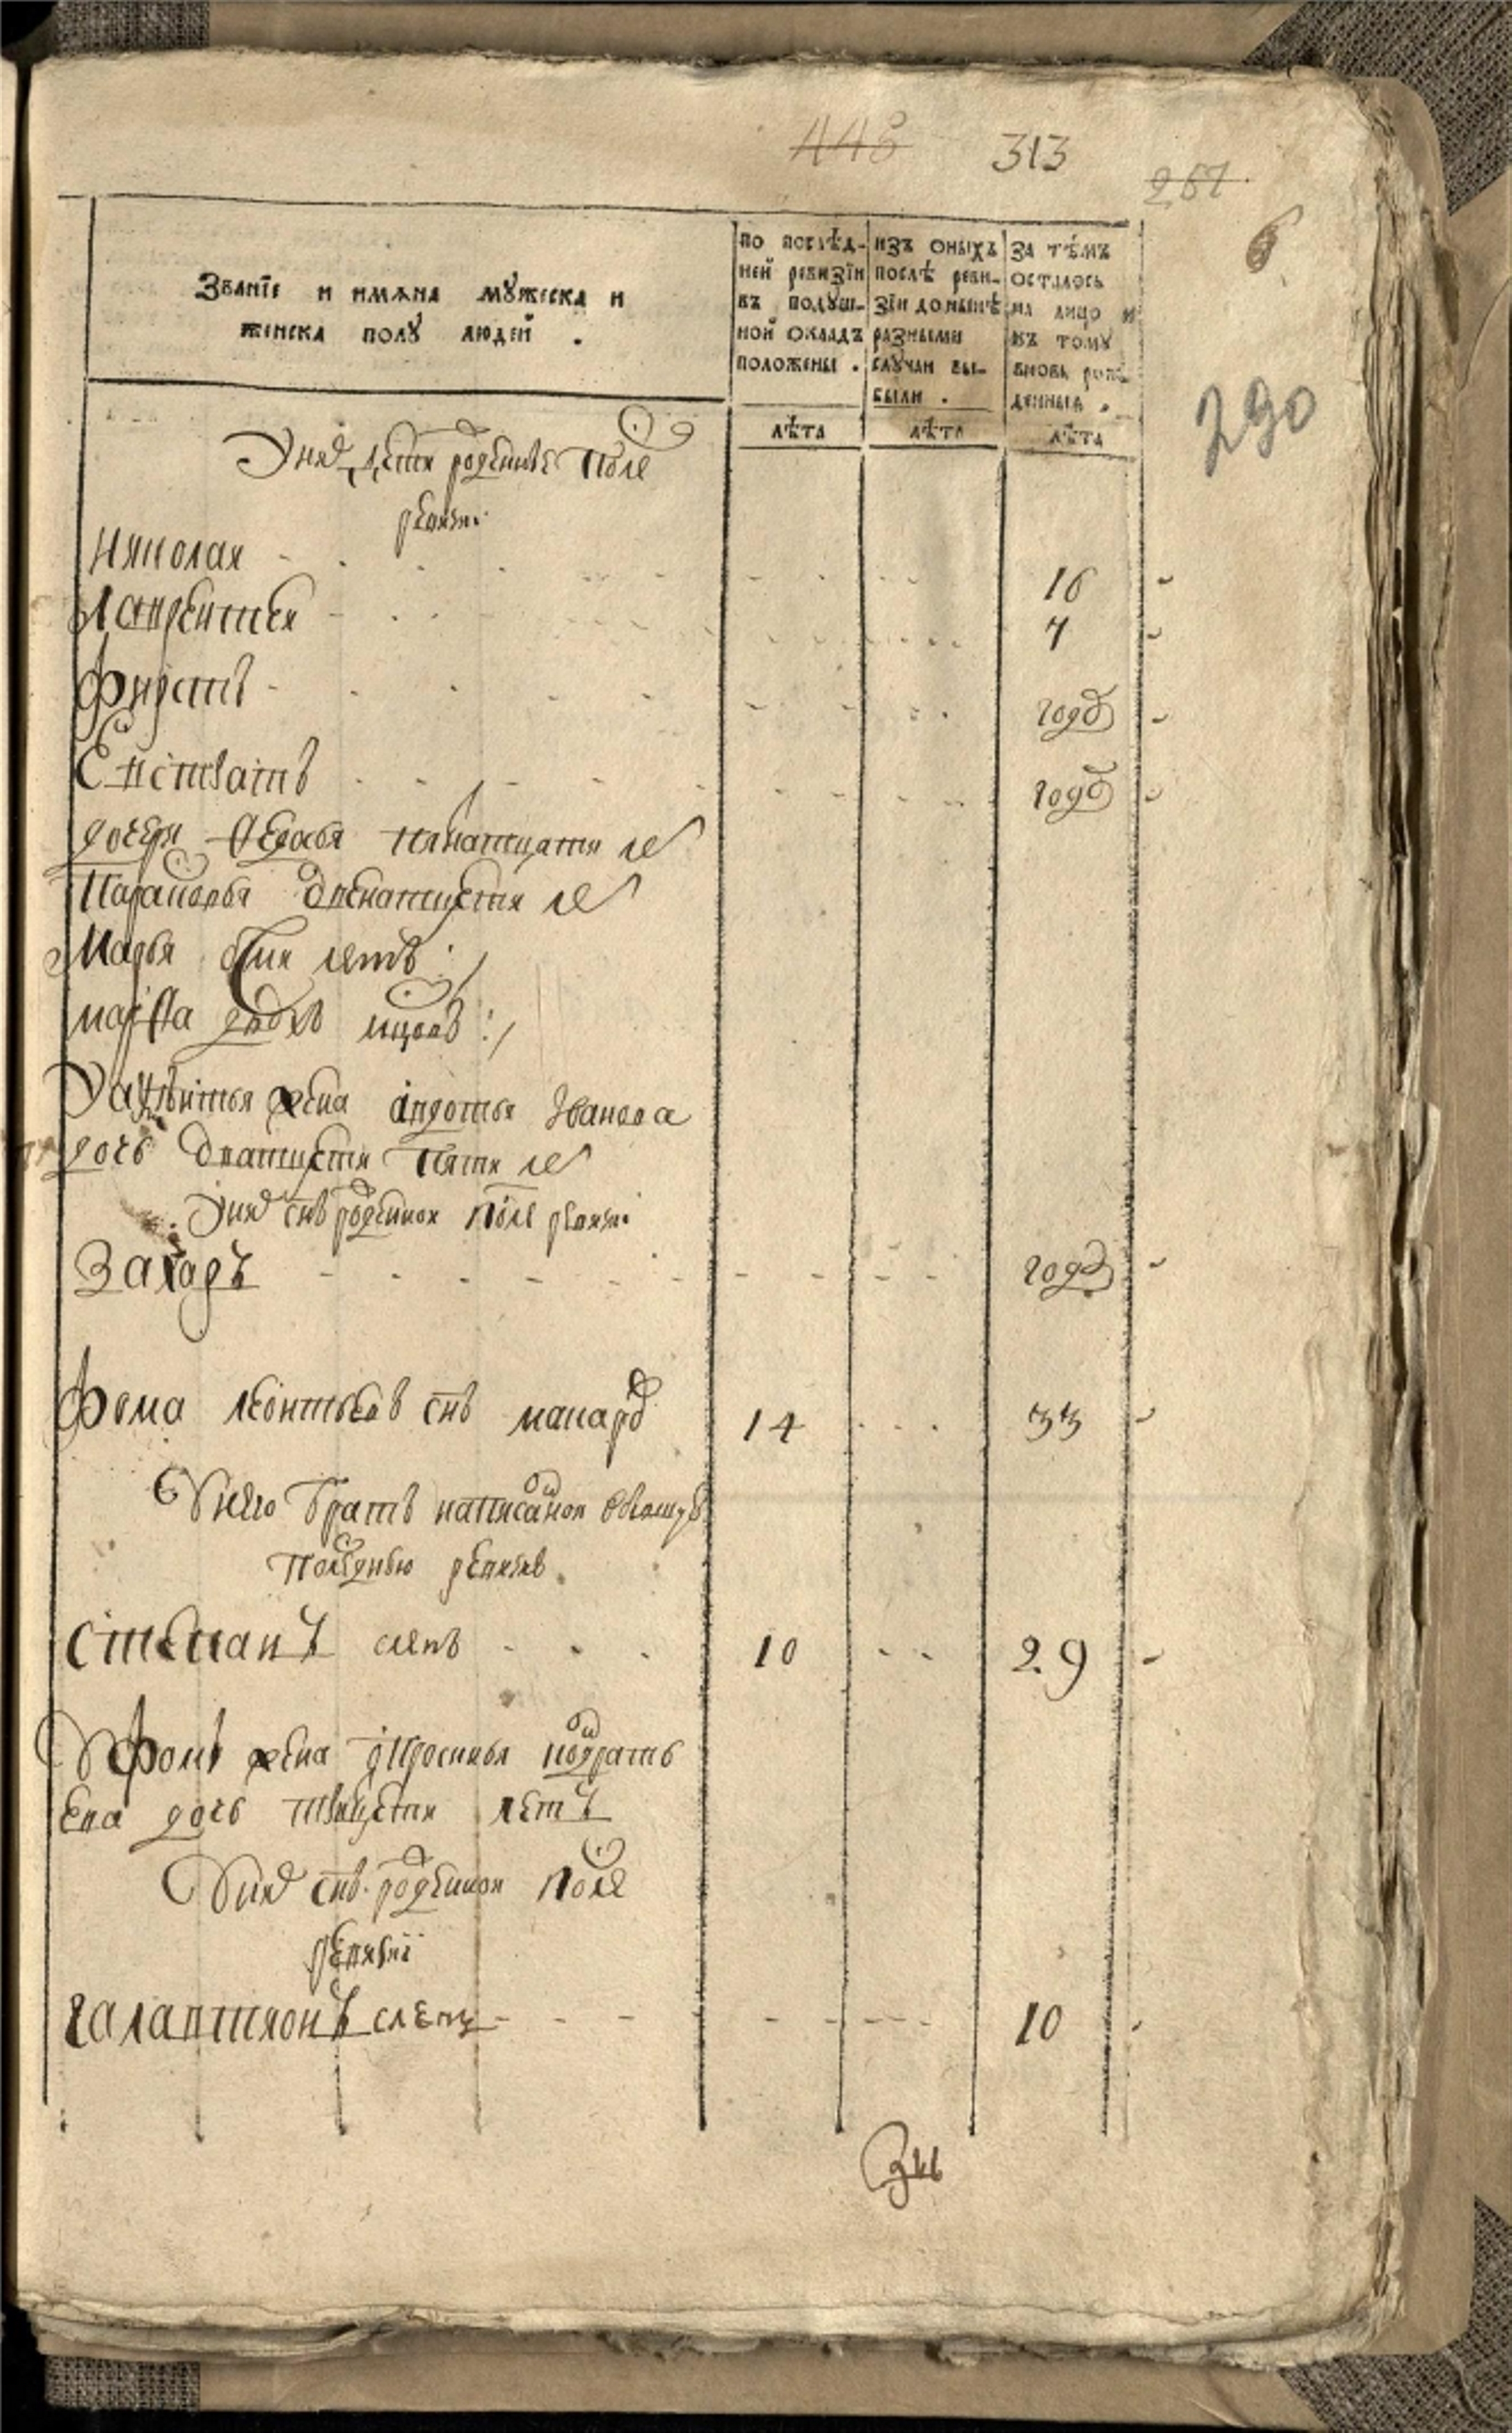 448 313
267
6
290
Званїе и имѧна мꙋжеска и
женска полꙋ людей .
по послѣд-
ней ревизїи
въ подꙋш-
ной окладъ
положены .
изъ оныхъ
послѣ реви-
зїи до нынѣ
разными
слꙋчаи вы-
были .
за тѣмъ
осталось
на лицо и
къ томꙋ
вновь рож-
денныя .
лѣта лѣта лѣта
У них дети рожденные после
ревизи
Николай 16
Лаврентей 7
Фирстъ году
Евстратъ году
дочери Федосья пятнатцати ле
Парасковья двенатцети ле
Марья семи летъ
марфа двохъ
У Лаврентья жена авдотья Иванова
дочь дватцети пяти ле
У них снъ рожденной после ревизи
Захаръ году
Фома леонтьевъ снъ макаро 14 33
У него братъ написанной
последнью ревизию
Степанъ слепъ 10 29
У фомы жена ефросинья кодрать
ева дочь тритцети летъ
У них снъ рожденной после
ревизиї
галактионъ слепъ 10